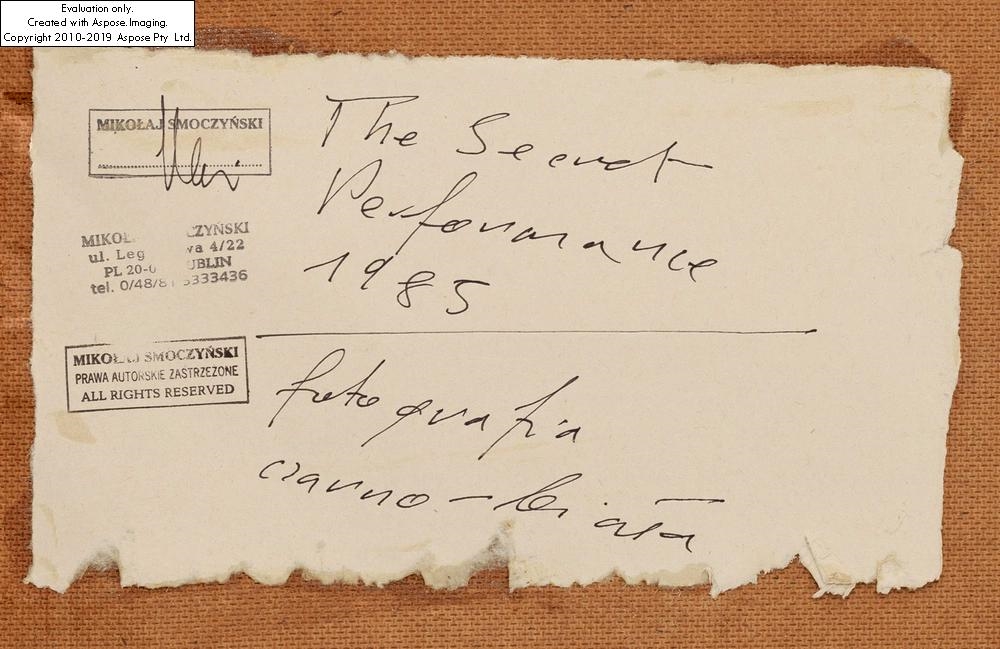 Evaluation only.
Created with Aspose.Imaging.
Copyright 2010-2019 Aspose Pty Ltd.
MIKOŁAJ SMOCZYŃSKI
The Secret
Performance
1985
MIKOŁ CZYŃSKI
ul. Leg wa 4/22
PL 20-0 UBLIN
tel. 0/48/81 5333436
MIKOŁAJ SMOCZYŃSKI
PRAWA AUTORSKIE ZASTRZEŻONE
ALL RIGHTS RESERVED
fotografia
czarno-biała